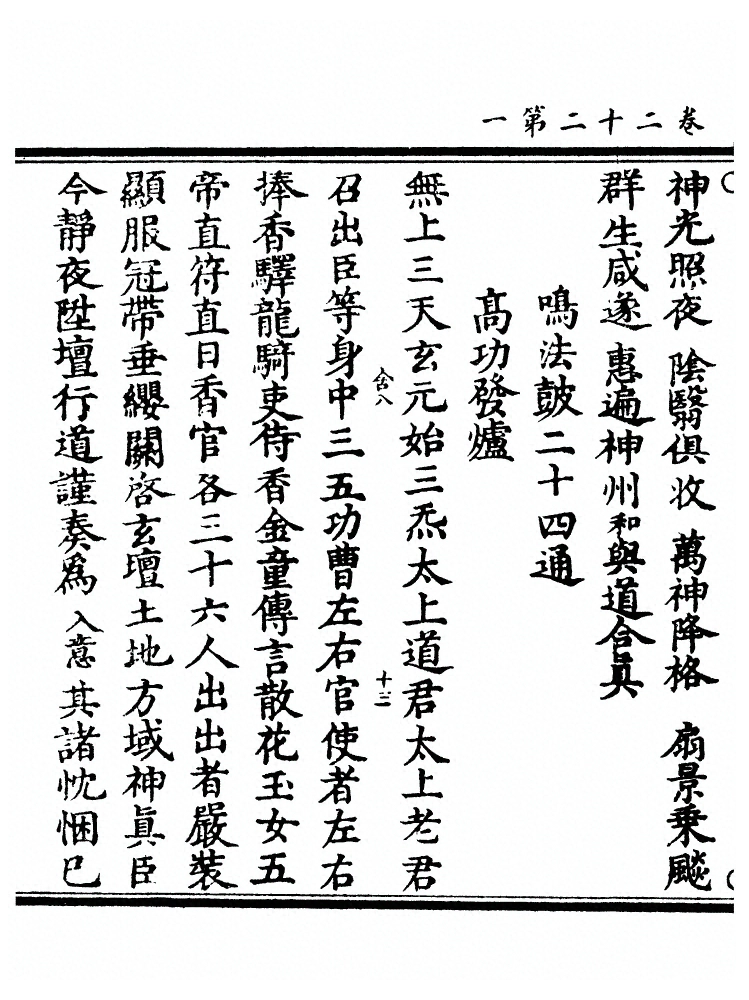 卷二十二第一
神光照夜 陰翳俱收 萬神降格 扇景乗飈
群生咸遂 惠遍神州 和與道合眞
鳴法鼓二十四通
髙功發爐
無上三天玄元始三炁太上道君太上老君
召出臣等身中三五功曹左右官使者左右
捧香驛龍騎吏侍香金童傳言散花玉女五
帝直符直日香官各三十六人出出者嚴裝
顯服冠帶垂纓關啓玄壇土地方域神眞臣
今靜夜陞壇行道謹奏爲 入意 其諸忱悃已
含八
十三